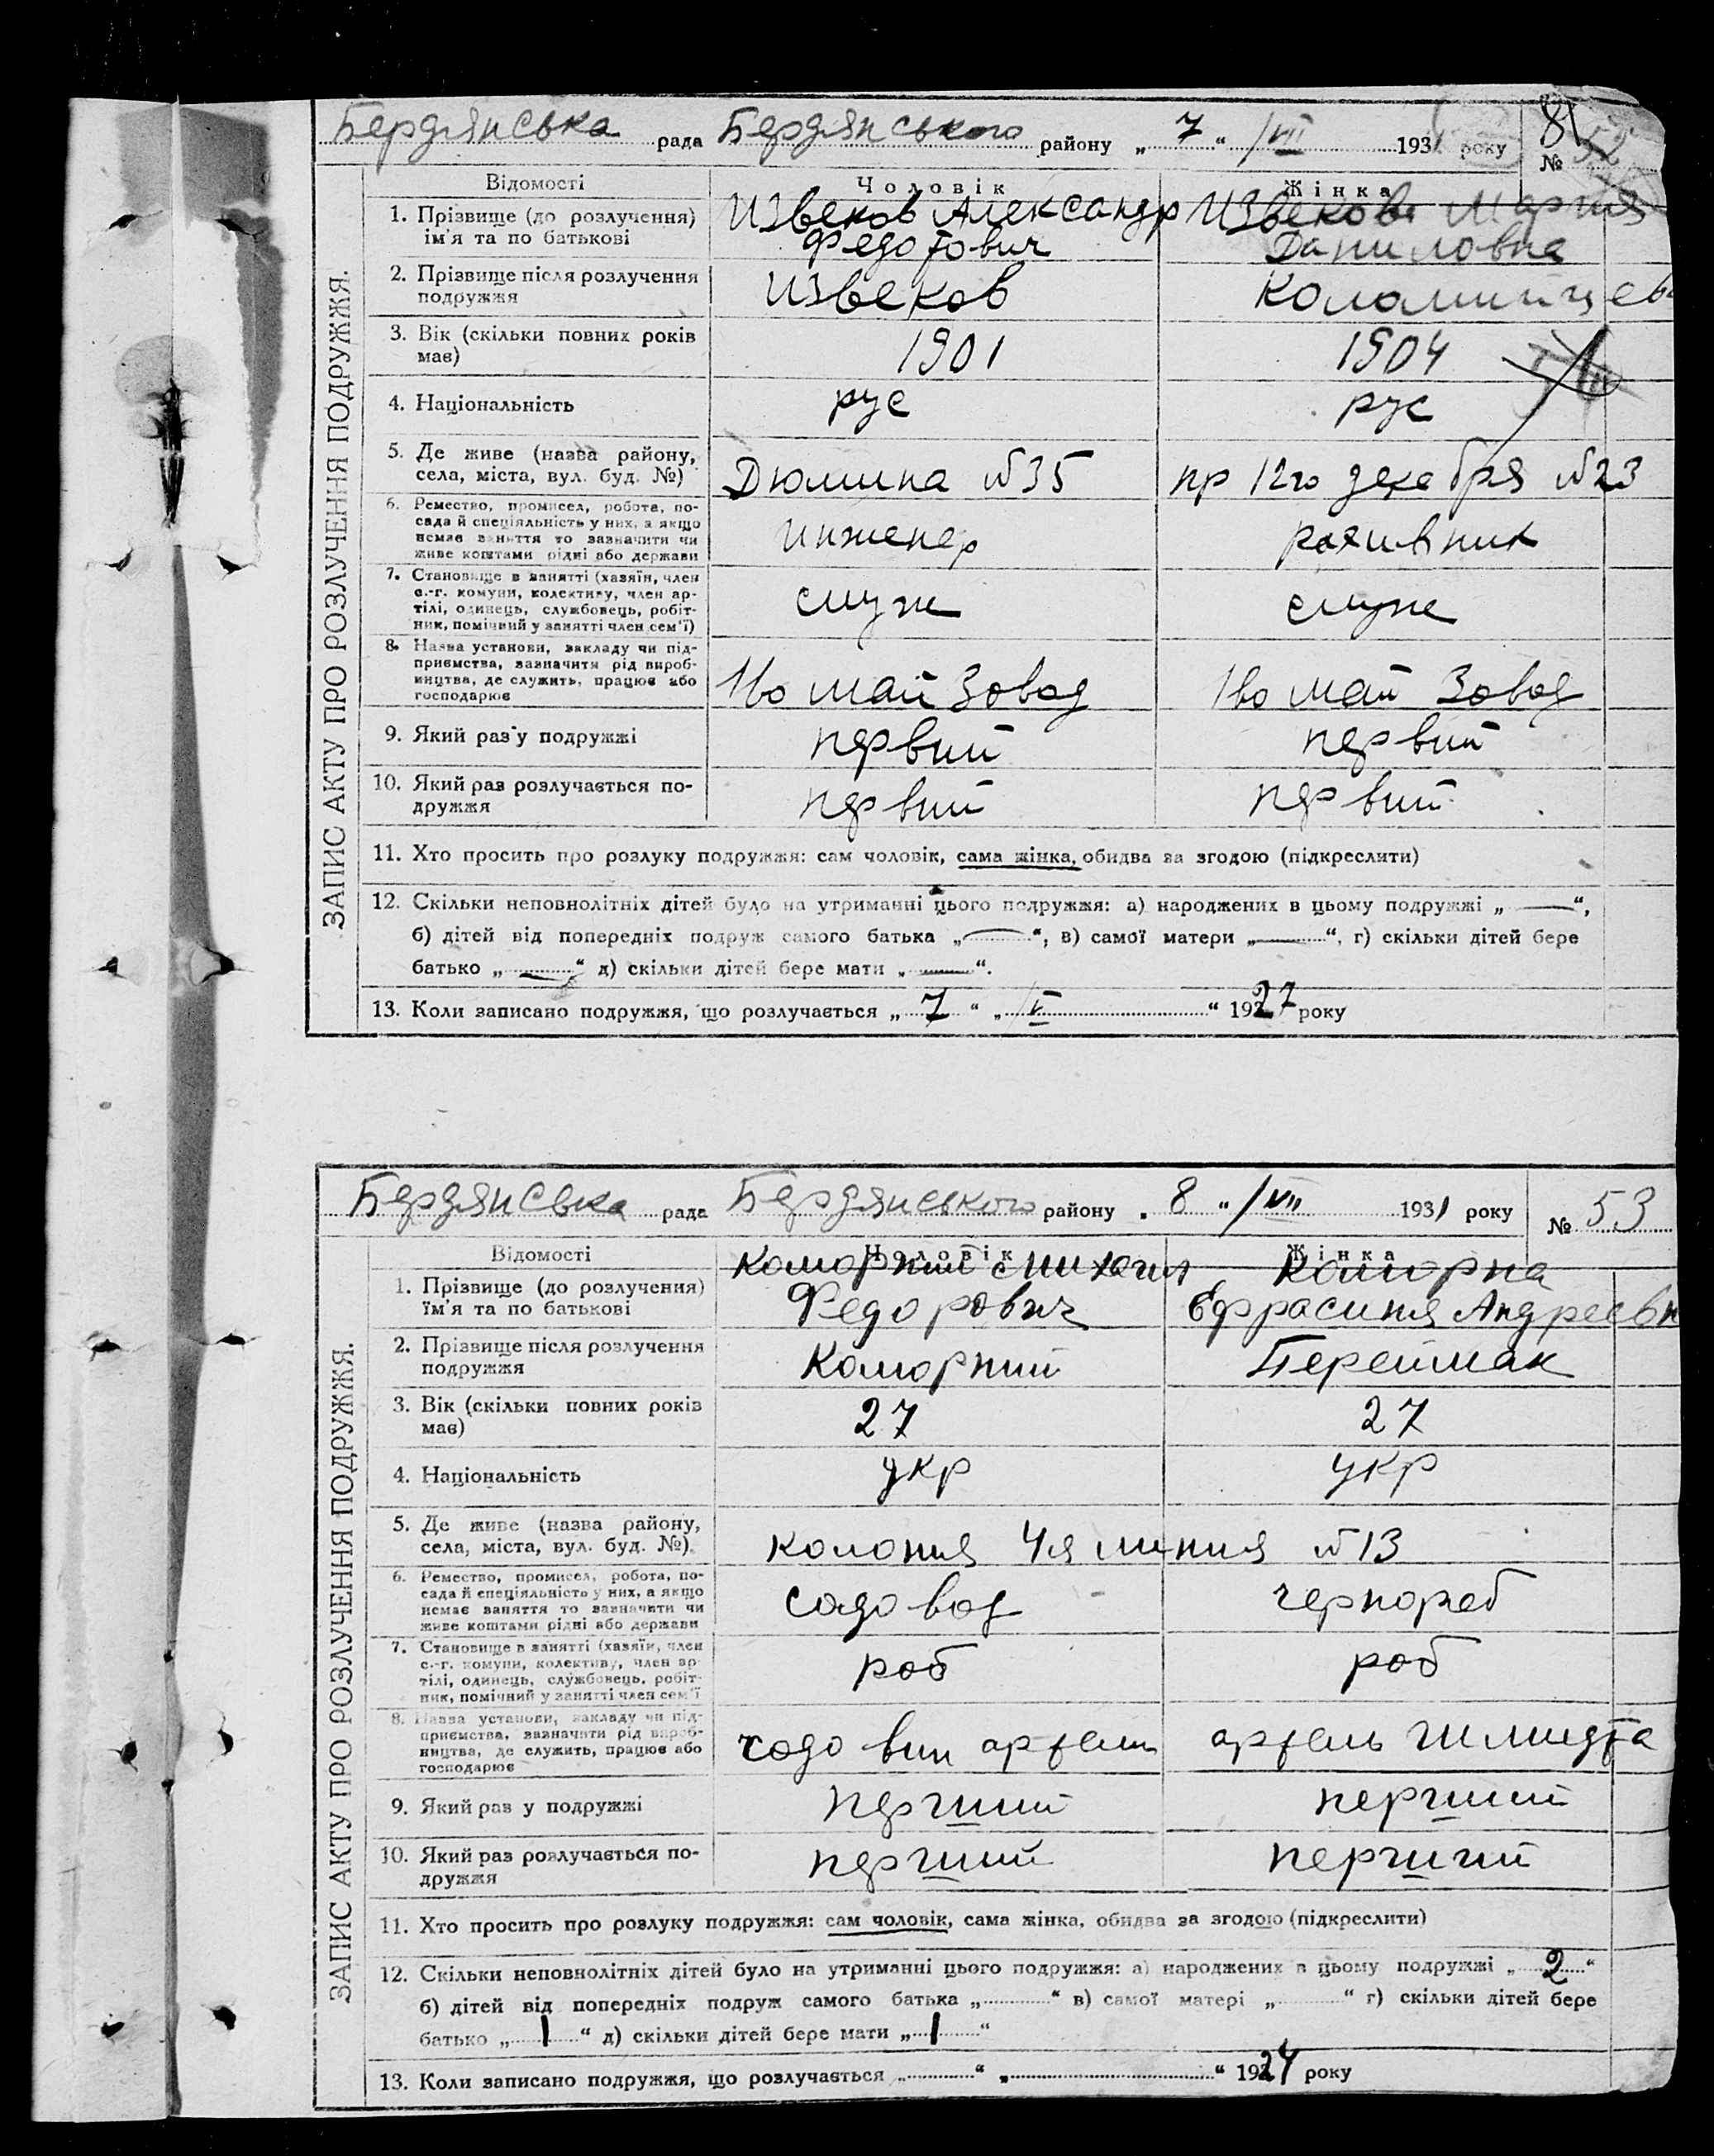 Бердянська рада Бердянського району „ 7 “ /VII 1931 року № 52
81
ЗАПИС АКТУ ПРО РОЗЛУЧЕННЯ ПОДРУЖЖЯ.
Відомості Чоловік Жінка
1. Прізвище (до розлучення) Извеков Александр Извекова Мария
ім'я та по батькові Федотович Даниловна
2. Прізвище після розлучення подружжя Извеков Коломийцева
3. Вік (скільки повних років має) 1901 1904
4. Національність рус рус
5. Де живе (назва району, села, міста, вул. буд. №) Дюмина №35 пр 12го декабря №23
6. Ремество, промисел, робота, по-
сада й спеціяльність у них, а якщо
немає заняття то зазначити чи
живе коштами рідні або держави инженер
7. Становище в занятті (хазяїн, член
с.-г. комуни, колективу, член ар-
тілі, одинець, службовець, робіт-
ник, помічний у занятті член сем'ї) служ служ
8. Назва установи, закладу чи під-
приємства, зазначити рід вироб-
ництва, де служить, працює або
господарює 1во май Завод 1во май Завод
9. Який раз у подружжі первий первий
10. Який раз розлучається по-
дружжя первий первий
11. Хто просить про розлуку подружжя: сам чоловік, сама жінка, обидва за згодою (підкреслити)
12. Скільки неповнолітніх дітей було на утриманні цього подружжя: а) народжених в цьому подружжі „ — “,
б) дітей від попередніх подруж самого батька „ — “, в) самої матери „ — “, г) скільки дітей бере
батько „ — “ д) скільки дітей бере мати „ — “.
13. Коли записано подружжя, що розлучається „ 7 “ „ /V “ 1927 року
Бердянська рада Бердянського району „ 8 “ /VII 1931 року № 53
ЗАПИС АКТУ ПРО РОЗЛУЧЕННЯ ПОДРУЖЖЯ.
Відомості Чоловік Жінка
1. Прізвище (до розлучення) Коморний Михаил Коморна
їм'я та по батькові Федорович Ефрасиня Андреевн
2. Прізвище після розлучення
подружжя Коморний
3. Вік (скільки повних років
має) 27 27
4. Національність укр укр
5. Де живе (назва району,
села, міста, вул. буд. №). колония 4я линия №13
6. Ремество, промисел, робота, по-
сада й спеціяльність у них, а якщо
немає заняття то зазначити чи
живе коштами рідні або держави садовод чернораб
7. Становище в занятті (хазяїн, член
с.-г. комуни, колективу, член ар-
тілі, одинець, службовець, робіт-
ник, помічний у занятті член сем'ї роб роб
8. Назва установи, закладу чи під-
приємства, зазначити рід вироб-
ництва, де служить, працює або
господарює садо вин артель артель Шмидта
9. Який раз у подружжі перший перший
10. Який раз розлучається по-
дружжя перший перший
11. Хто просить про розлуку подружжя: сам чоловік, сама жінка, обидва за згодою (підкреслити)
12. Скільки неповнолітніх дітей було на утриманні цього подружжя: а) народжених в цьому подружжі „ 2 “
б) дітей від попередніх подруж самого батька „ “ в) самої матері „ “ г) скільки дітей бере
батько „ 1 “ д) скільки дітей бере мати „ 1 “
13. Коли записано подружжя, що розлучається „ “ „ “ 1924 року